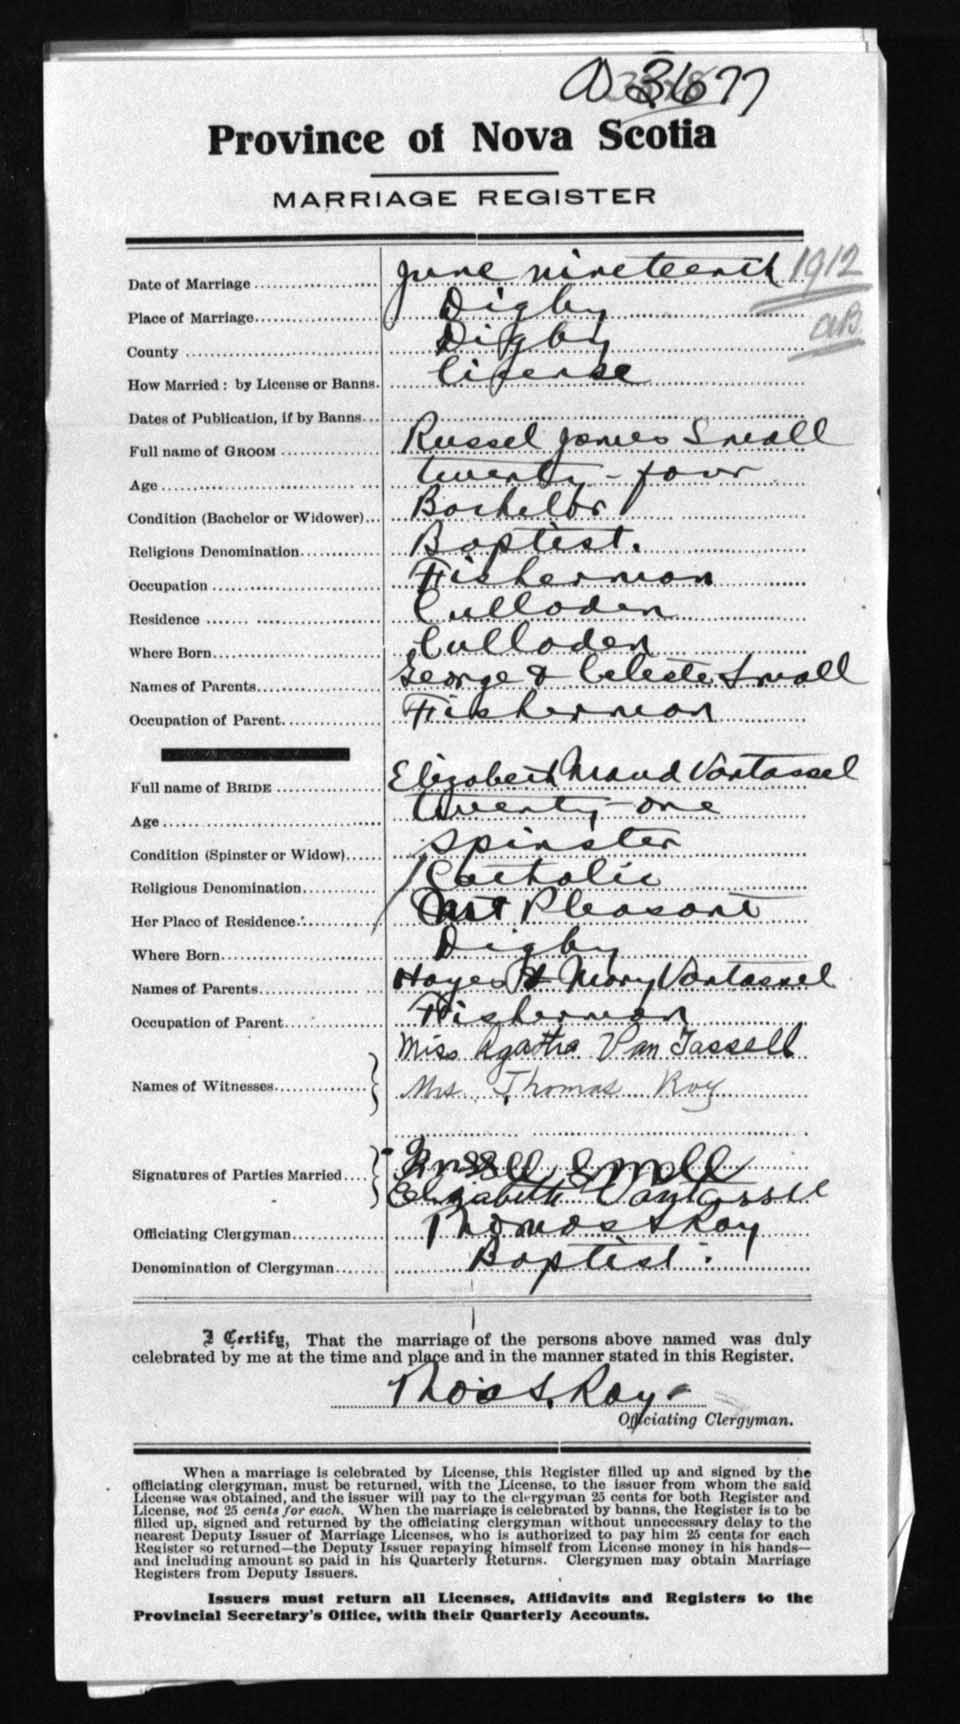 3677
Province of Nova Scotia
MARRIAGE REGISTER
Date of Marriage June nineteenth 1912
Place of Marriage Digby
aB.
County Digby
How Married: by License or Banns. license
Dates of Publication, if by Banns
Full name of GROOM Russel James Small
Age twenty-four
Condition (Bachelor or Widower) Bachelor
Religious Denomination Baptist.
Occupation Fisherman
Residence Culloden
Where Born Culloden
Names of Parents George & Celeste Small
Occupation of Parent Fisherman
Full name of BRIDE Elizabeth Maud Vantassel
Age twenty-one
Condition (Spinster or Widow) Spinster
Religious Denomination Catholic
Her Place of Residence Mt Pleasant
Where Born Digby
Names of Parents Hayes & Mary Vantassel
Occupation of Parent Fisherman
Miss Agatha Van Tassell
Names of Witnesses Mrs. Thomas Roy
Signatures of Parties Married Russell Small
Elizabeth VanTassell
Officiating Clergyman Thomas S Roy
Denomination of Clergyman Baptist.
I Certify, That the marriage of the persons above named was duly
celebrated by me at the time and place and in the manner stated in this Register.
Thos S. Roy
Officiating Clergyman.
When a marriage is celebrated by License, this Register filled up and signed by the
officiating clergyman, must be returned, with the License, to the issuer from whom the said
License was obtained, and the issuer will pay to the clergyman 25 cents for both Register and
License, not 25 cents for each. When the marriage is celebrated by banns, the Register is to be
filled up, signed and returned by the officiating clergyman without unnecessary delay to the
nearest Deputy Issuer of Marriage Licenses, who is authorized to pay him 25 cents for each
Register so returned—the Deputy Issuer repaying himself from License money in his hands—
and including amount so paid in his Quarterly Returns. Clergymen may obtain Marriage
Registers from Deputy Issuers.
Issuers must return all Licenses, Affidavits and Registers to the
Provincial Secretary's Office, with their Quarterly Accounts.